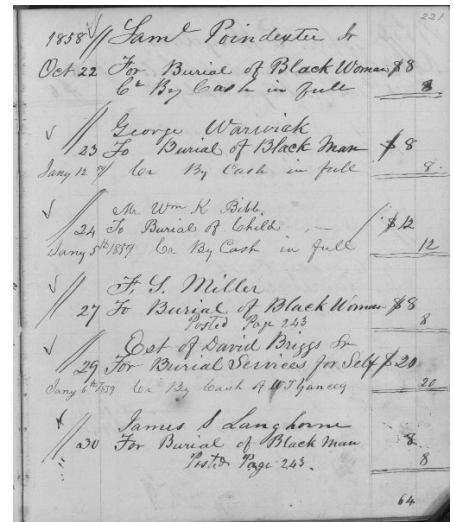 221
1858 // Saml Poindexter Sr
Oct 22 For Burial of Black Woman $8
Cr By Cash in full 8
George Warwick
// 23 To Burial of Black Man $8
Jany 12 Cr By Cash in full 8
Mr Wm K Bibb.
// 24 To Burial of Child — $12
Jany 5th 1859 Cr By Cash in full 12
F. S. Miller
// 27 To Burial of Black Woman $8
Posted Page 243 8
Est of David Briggs Sr
// 29 For Burial Services for Self $20
Jany 6th 1859 Cr By Cash of W T Yancey 20
James S Langhorne
// 30 For Burial of Black Man 8
Posted Page 243. 8
64